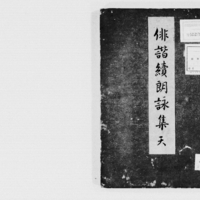 俳諧續朗詠集 天